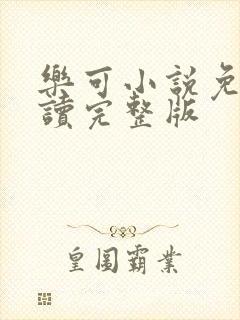 樂可小說免
讀完整版
皇圖霸業